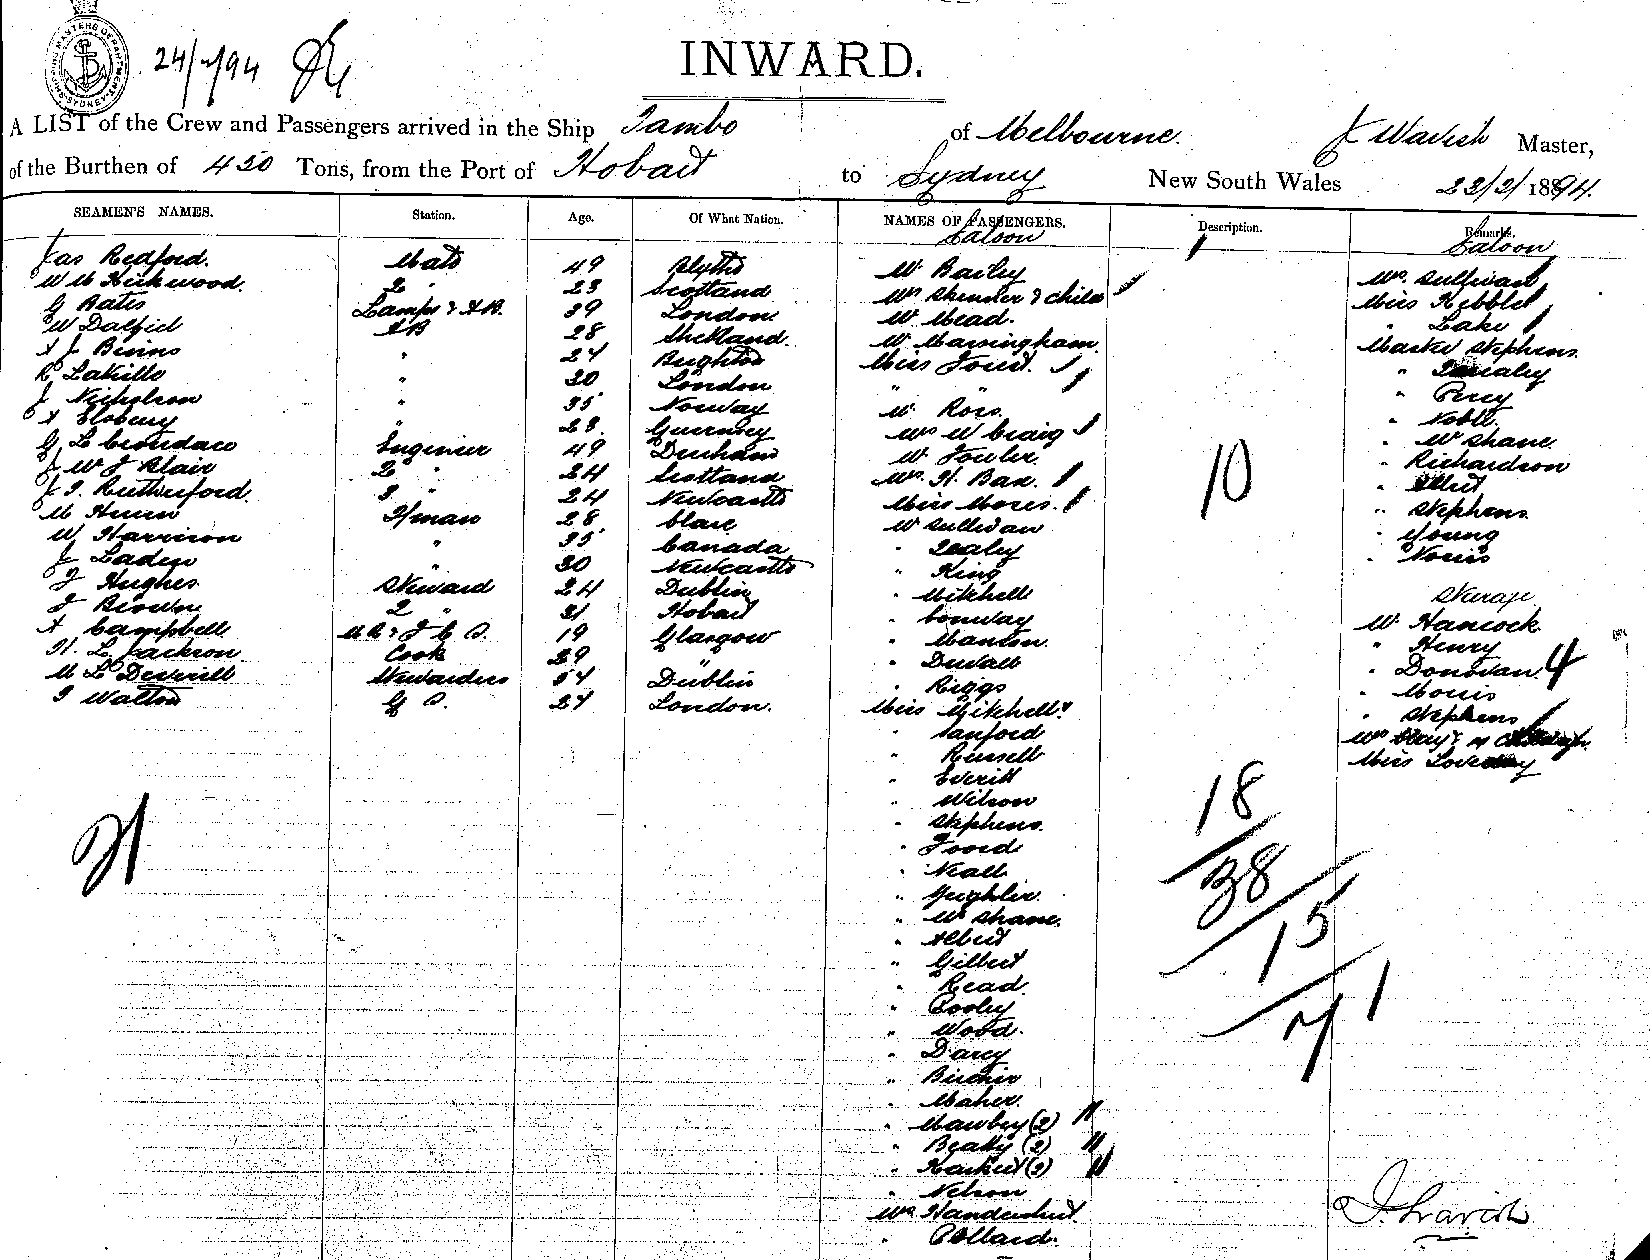 24/2/94
INWARD.
A LIST of the Crew and Passengers arrived in the Ship Tambo of Melbourne. Master,
of the Burthen of 450 Tons, from the Port of Hobart to Sydney New South Wales 22/2/1894.
SEAMEN'S NAMES. Station. Age. Of What Nation. NAMES OF PASSENGERS. Description. Remarks.
Saloon Saloon
Jas Redford. Mate 49 Blythe Mr Bailey Mrs Sullivan
W M Kirkwood. 2 " 23 Scotland Mrs Skinder & child Miss Kibble
G Bates Lamps & AB. 39 London. Mr Mead. " Lake
W Dalfiel AB 28 Shetland. Mr Massingham. Master Stephens.
A J Binns " 24 Brighton Miss Foord. "
" 30 London " " " Percy
J Nicholson " 35 Norway Mr Ross. " Noble
A Elsbury " 23. Guernsey Mrs W Craig " McShane
Engineer 49 Durham Mr Fowler. " Richardson
J W J Blair 2 " 24 Scotland Mrs H. Bax. " Albert
J T. Rutherford. 3 " 24 Newcastle Miss Moris. " Stephens.
M F'man 28 Clare Mr Sullivan " Young
W Harrison " 35 Canada " Lealey " Norris
J Laden " 30 Newcastle " King
J Hughes Steward 24 Dublin " Mitchell Steerage
J Brown 2 " 21 Hobart " Conway Mr Hancock.
A Campbell 19 Glasgow " Manton. " Henry
H. L. Jackson Cook 29 " " Duvall " Donovan. 4
M L Deverill Stewardess 54 Dublin " Riggs " Morris
T Walton 24 London. Miss Mitchell. " Stephens
" Sanford Mrs
" Russell Miss Loveday
" Everitt
" Wilson
" Stephens.
" Foord
" Neall
" Yeighler.
" McShane.
" Albert
" Gilbert
" Read.
" Cooley
" Wood.
" Darcy
" Birchir
" Maher.
" Mawbey (2)
" Beatty (2)
" (2)
" Nelson
Mrs
" Pollard.
21
10
18
38
15
71